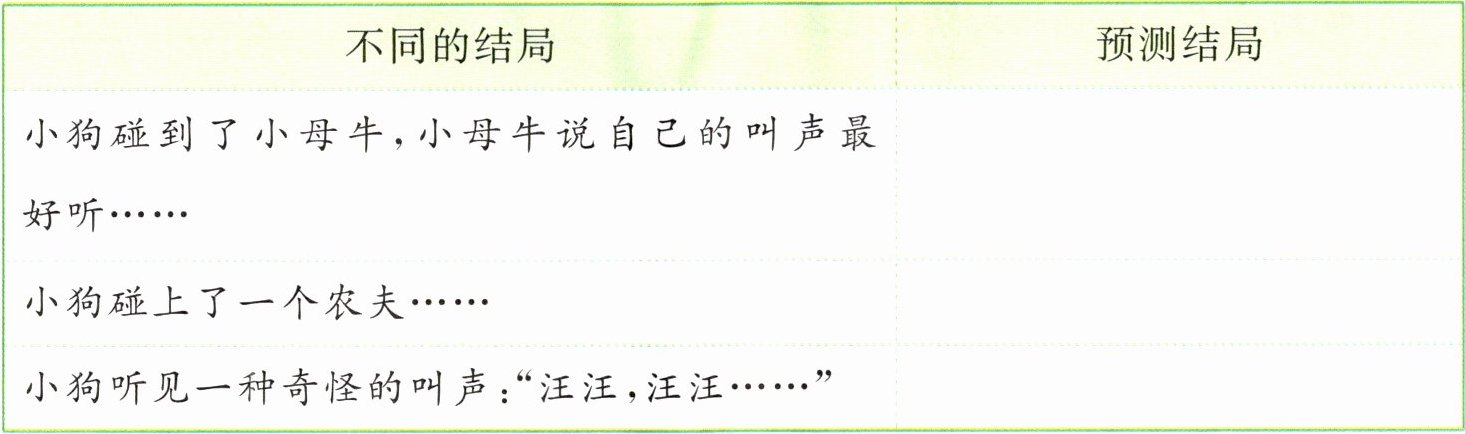 不同的结局 预测结局
小狗碰到了小母牛,小母牛说自己的叫声最
好听……
小狗碰上了一个农夫……
小狗听见一种奇怪的叫声:“汪汪,汪汪……”